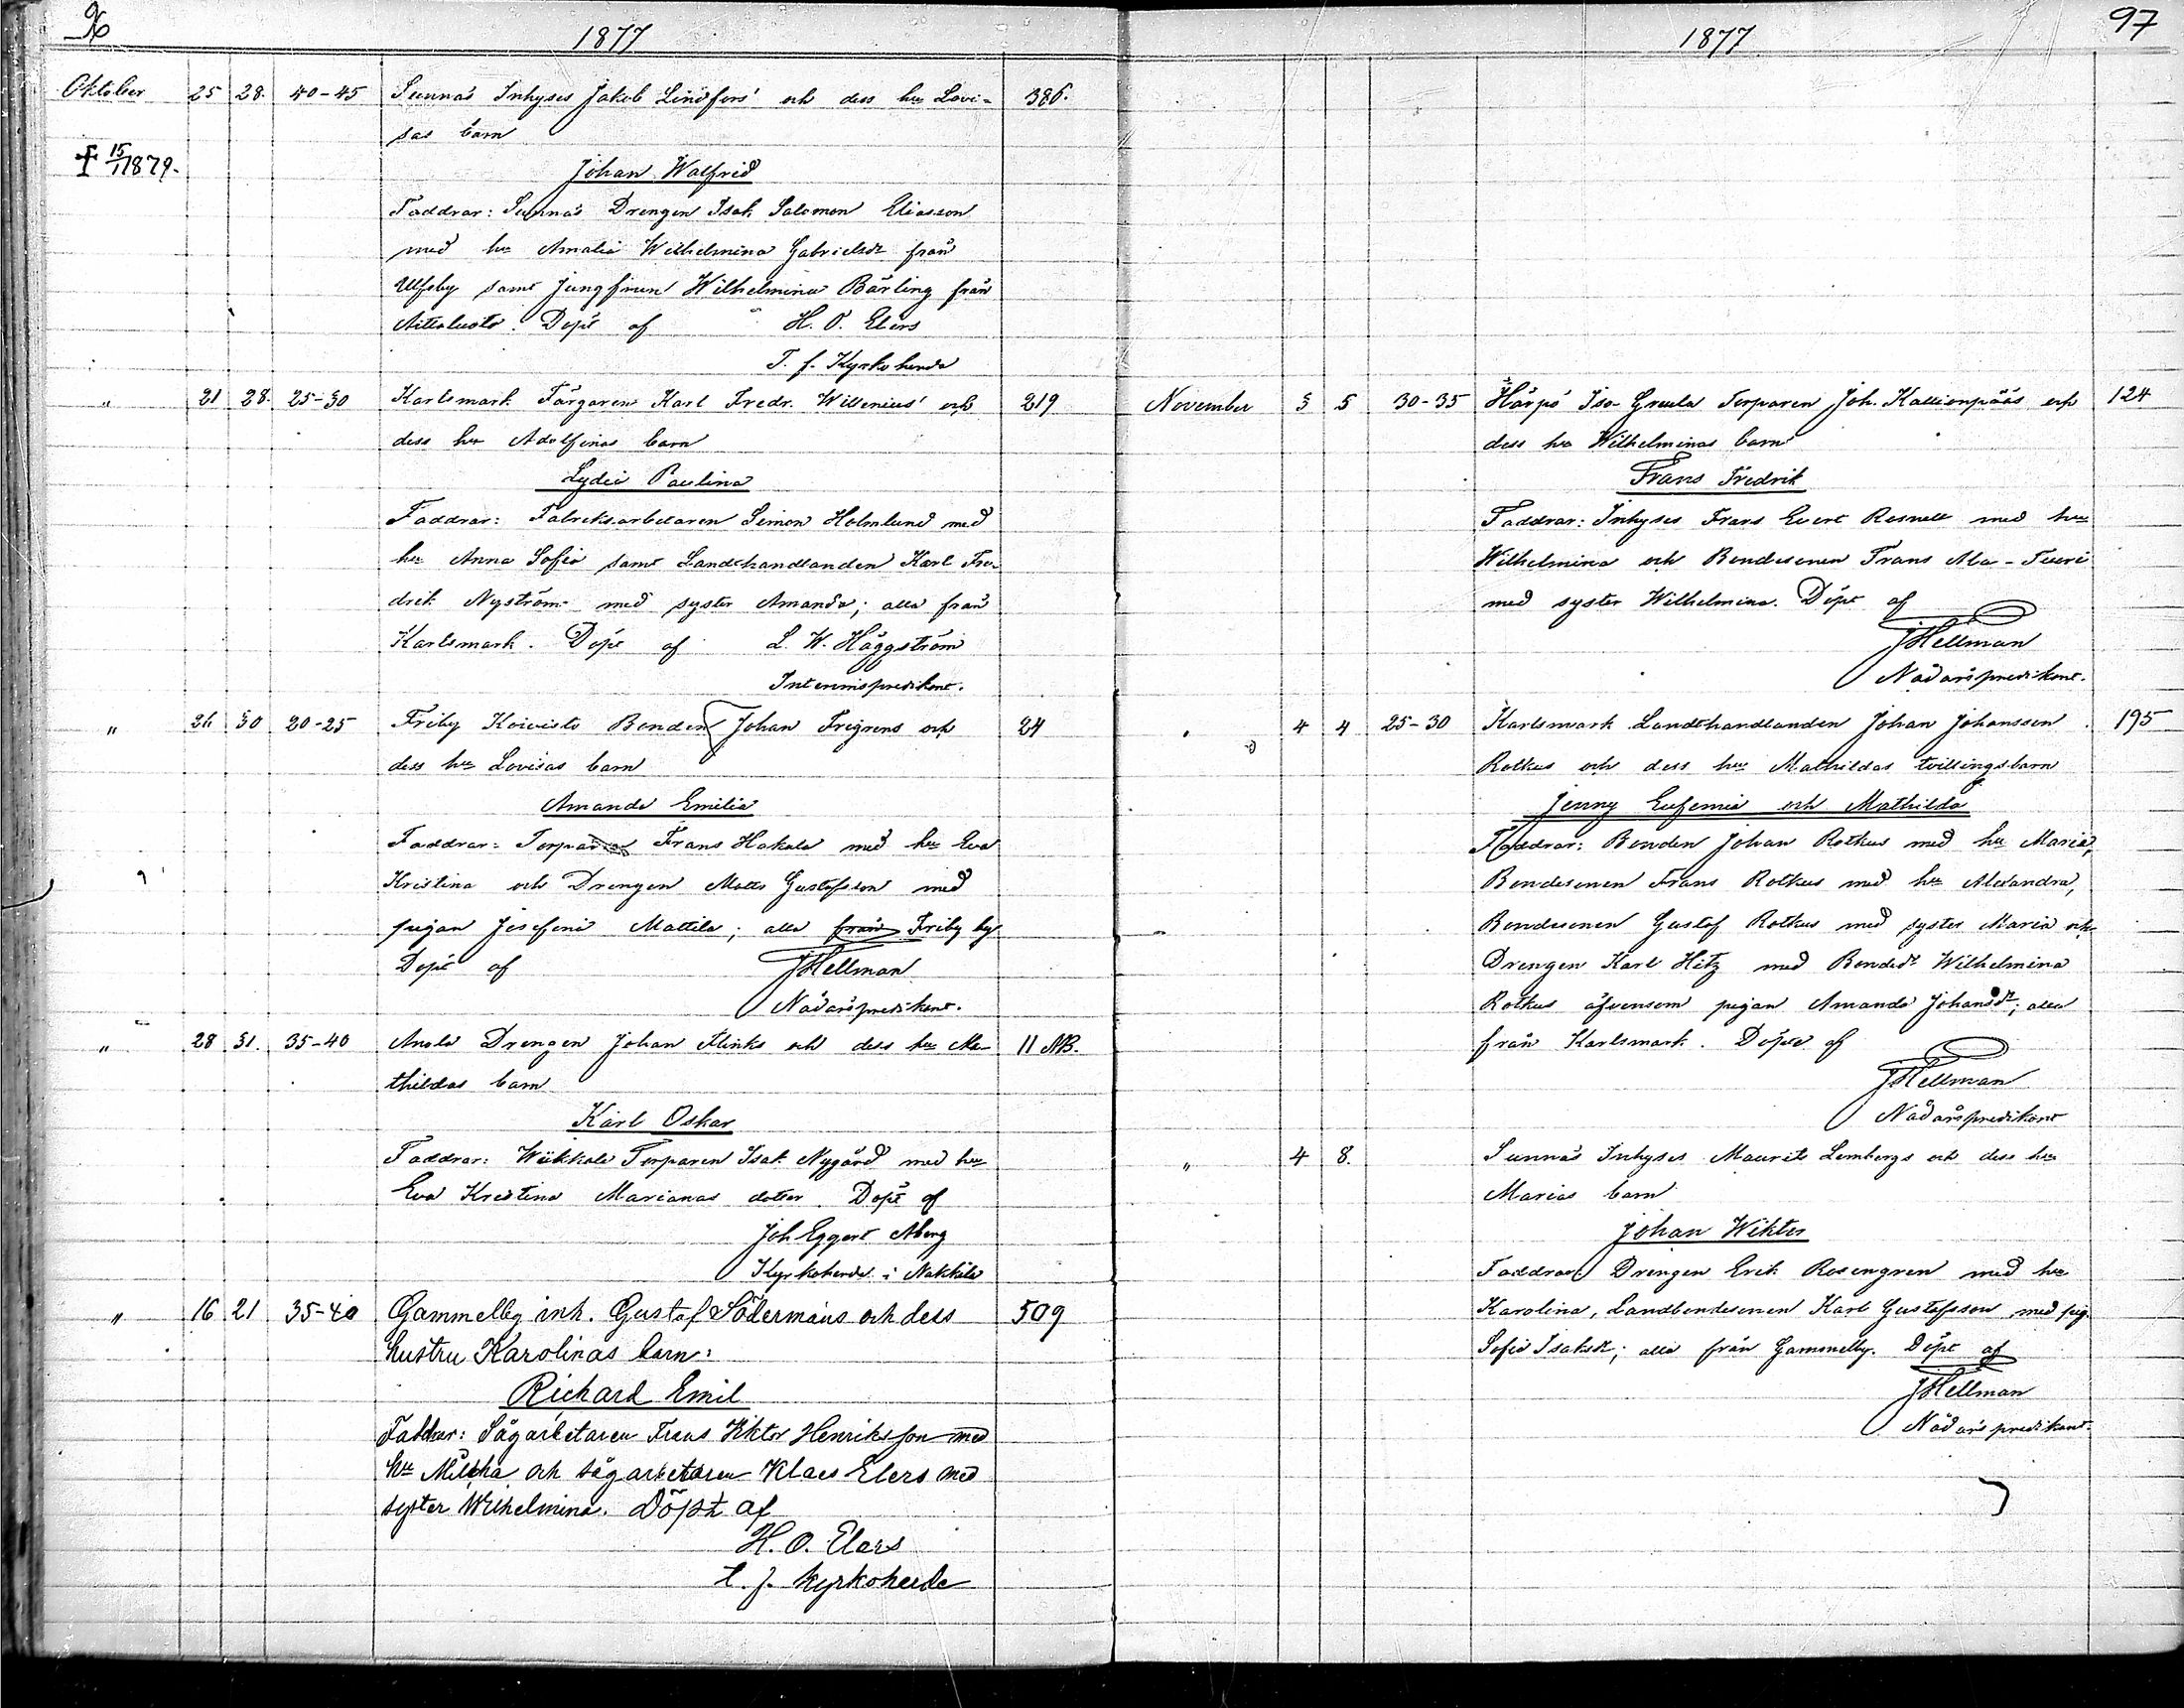 96
1877
Oktober 25 28. 40-45 Sunnäs Inhyses Jakob Lindfors' och dess hu Lovi- 386.
sas barn
† 15/1 1879.
Johan Walfrid
Faddrar: Sunnäs Drengen Isak Salomon Eliasson
med hu Amalia Wilhelmina Gabrielsdr från
Ulfsby samt jungfrun Wilhelmina Bärling från
Aittaluoto. Döpt af H. O. Elers
T. f. Kyrkoherde
" 21 28. 25-30 Karlsmark Färgaren Karl Fredr. Willenius' och 219
dess hu Adolfinas barn
Lydia Paulina
Faddrar: Fabriksarbetaren Simon Holmlund med
hu Anna Sofia samt Landthandlanden Karl Fre-
drik Nyström med syster Amanda; alla från
Karlsmark. Döpt af L. W. Häggström
Interimspredikant.
" 26 30 20-25 Friby Koivisto Bonden Johan Frigrens och 24
dess hu Lovisas barn
Amanda Emilia
Faddrar: Torparen Frans Hakala med hu Eva
Kristina och Drengen Matts Gustafsson med
pigan Josefina Mattila; alla från Friby by
Döpt af JHellman
Nådårspredikant.
" 28 31. 35-40 Anola Drengen Johan Flinks och dess hu Ma- 11 NB.
thildas barn
Karl Oskar
Faddrar: Wiikkala Torparen Isak Nygård med hu
Eva Kristina Marianas dotter. Döpt af
Joh Eggert Åberg
Kyrkoherde i Nakkila
" 16 21 35-40 Gammelby inh. Gustaf Södermans och dess 509
hustru Karolinas barn:
Richard Emil
Faddrar: Sågarbetaren Frans Viktor Henriksson med
hu Milkha och sågarbetaren Klaes Elers med
syster Wilhelmina. Döpt af
H. O. Elers
t. f. kyrkoherde
97
1877
November 3 5 30-35 Härpö Iso-Gruula Torparen Joh. Kallionpääs och 124
dess hu Wilhelminas barn
Frans Fredrik
Faddrar: Inhyses Frans Evert Rosnell med hu
Wilhelmina och Bondesonen Frans Ala-Tuuri
med syster Wilhelmina. Döpt af
JHellman
Nådårspredikant.
" 4 4 25-30 Karlsmark Landthandlanden Johan Johansson 195
Rotkus och dess hu Mathildas tvillingsbarn
Jenny Eufemia och Mathilda
Faddrar: Bonden Johan Rotkus med hu Maria,
Bondesonen Frans Rotkus med hu Alexandra,
Bondesonen Gustaf Rotkus med syster Maria och
Drengen Karl Hitz med Bondedr Wilhelmina
Rotkus äfvensom pigan Amanda Johansdr; alla
från Karlsmark. Döpte af
JHellman
Nådårspredikant
" 4 8. Sunnäs Inhyses Maurits Lembergs och dess hu
Marias barn
Johan Wiktor
Faddrar Drengen Erik Rosengren med hu
Karolina, Landbondesonen Karl Gustafsson med pig.
Sofia Isaksdr; alla från Gammelby. Döpt af
JHellman
Nådårspredikant.